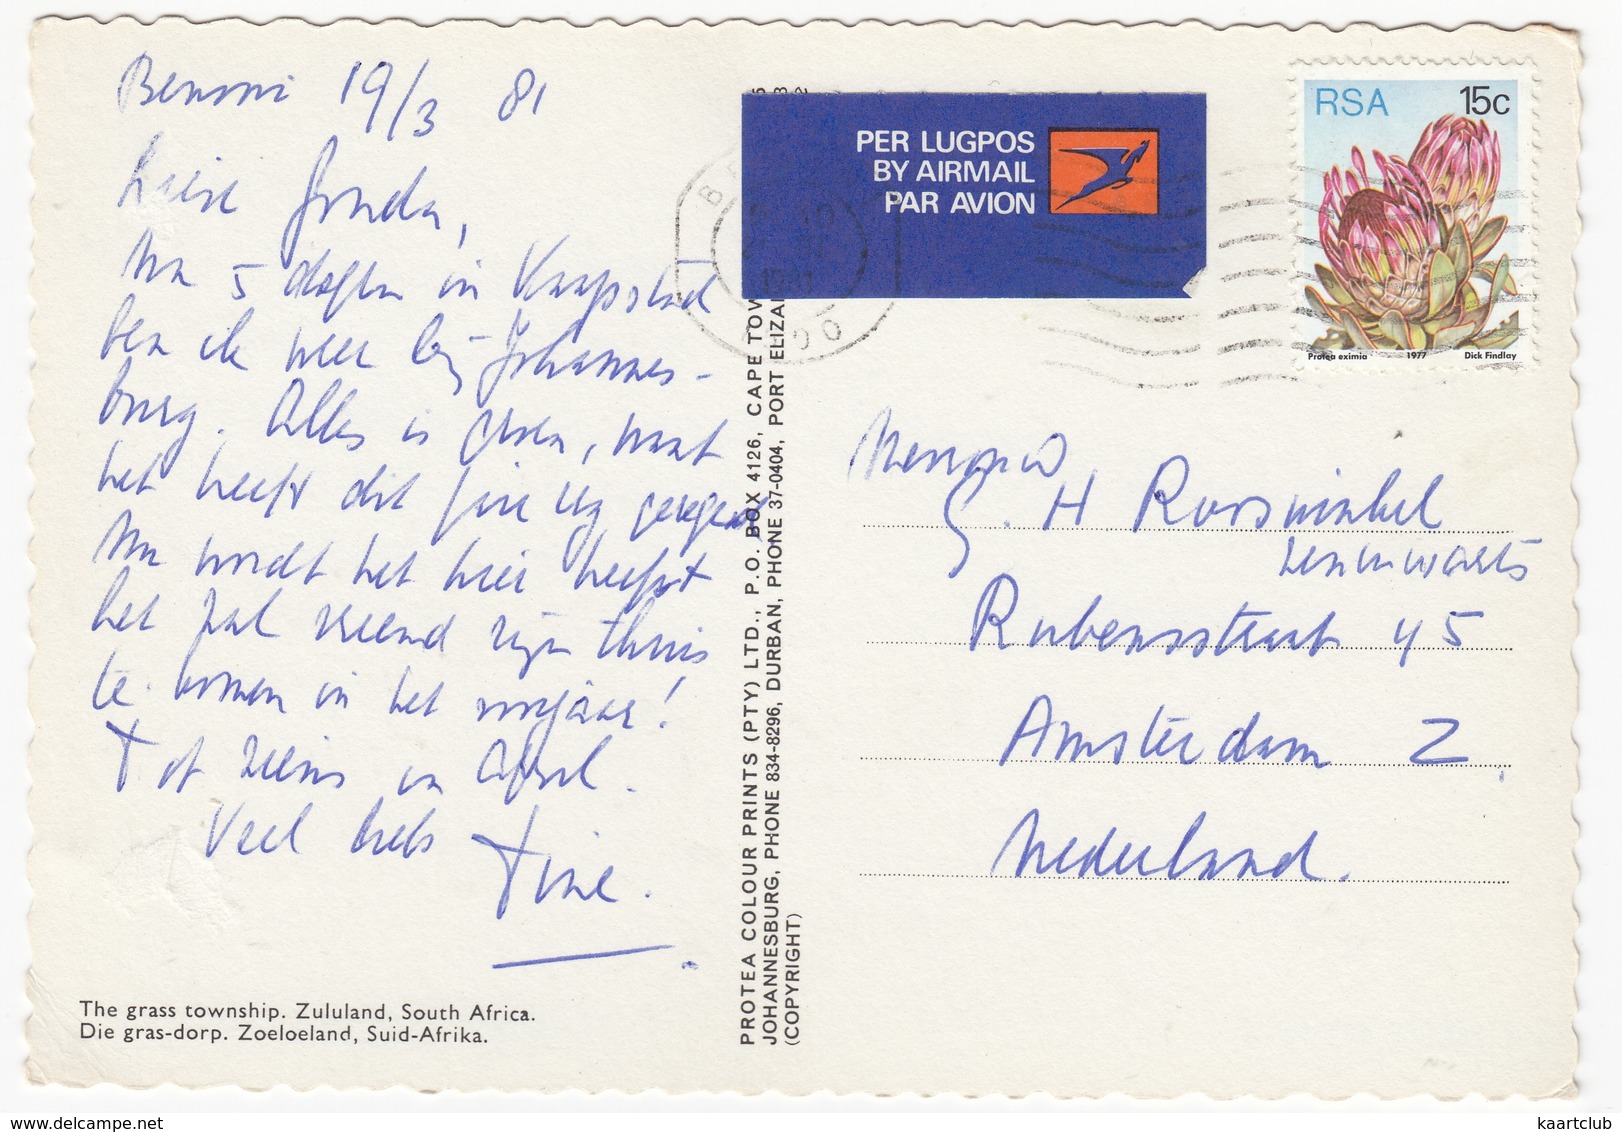 Benoni 19/3 81
Lieve
Na 5 dagen in Kaapstad
ben ik weer bij Johannes-
burg. Alles is groen, want
het heeft dit jaar erg geregend
Nu wordt het hier herfst
het zal vreemd zijn thuis
te komen in het voorjaar!
Tot ziens in April.
Veel liefs
Tine.
The grass township. Zululand, South Africa.
Die gras-dorp. Zoeloeland, Suid-Afrika.
PROTEA COLOUR PRINTS (PTY) LTD., P.O. BOX 4126, CAPE TOW
JOHANNESBURG, PHONE 834-8296, DURBAN, PHONE 37-0404, PORT ELIZA
(COPYRIGHT)
PER LUGPOS
BY AIRMAIL
PAR AVION
RSA 15c
Protea eximia 1977 Dick Findlay
Mevrouw
G. H Rooswinkel
Leeuwarts
Rubensstraat 45
Amsterdam Z.
Nederland.
kaartclub